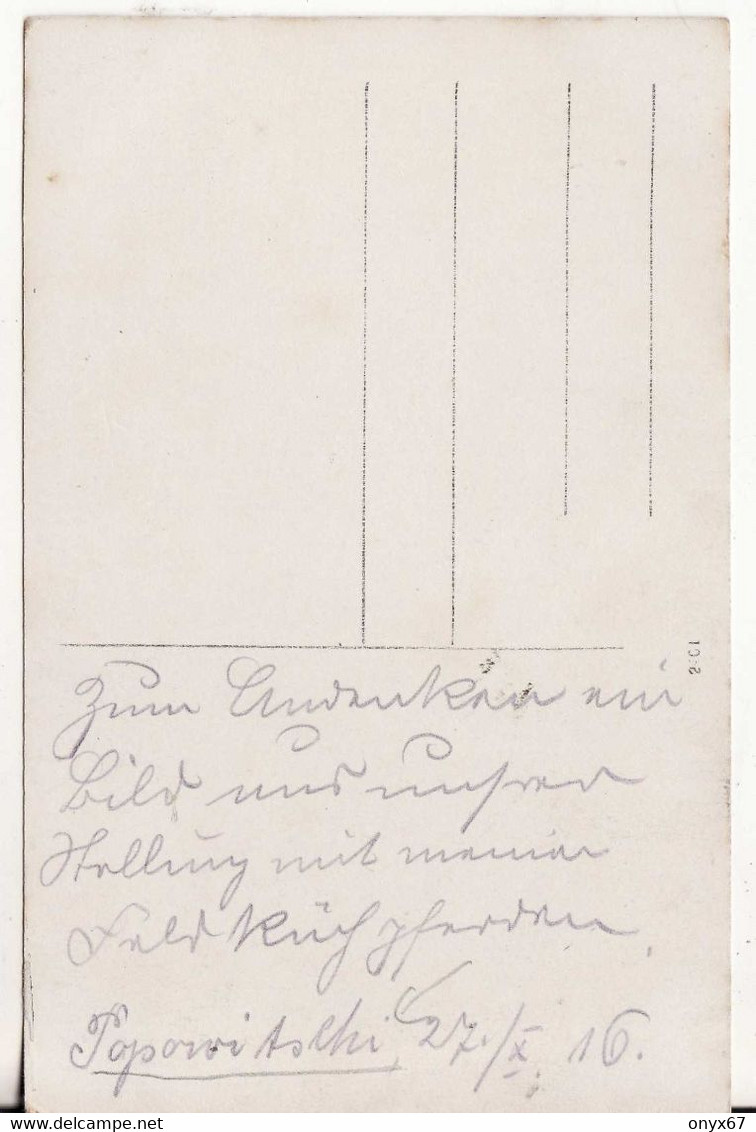 Zum Andenken ein
Bild aus unsrer
Stellung mit meinen
Feldküchpferden.
Popowitschi, 27./X. 16.
delcampe.net
onyx67